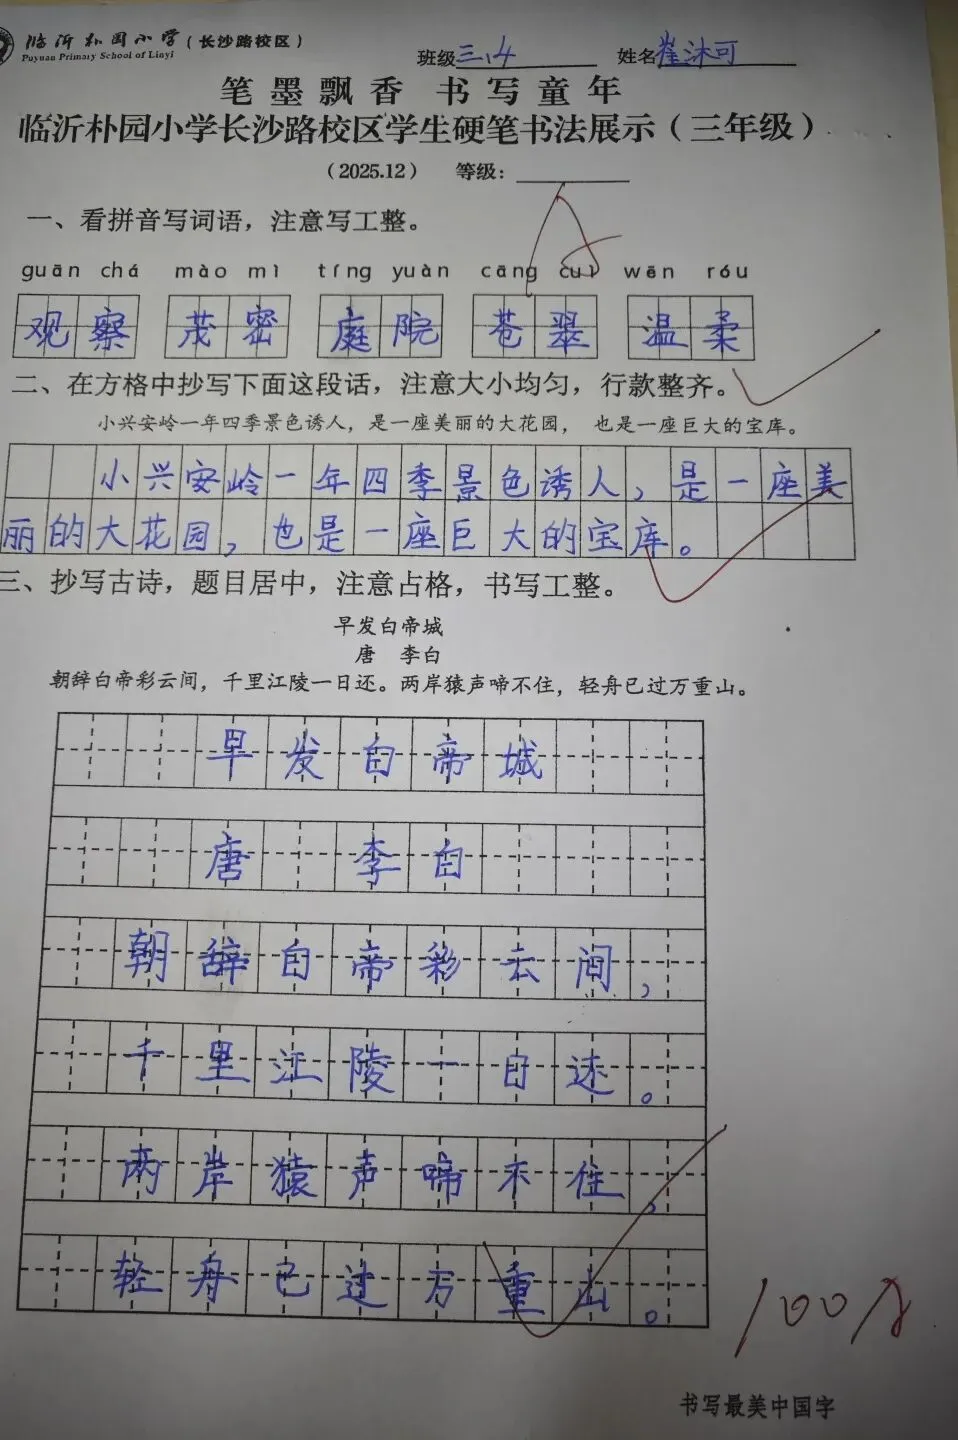 临沂朴园小学（长沙路校区）
Puyuan Primary School of Linyi
班级 三.4 姓名 崔沐可
笔墨飘香 书写童年
临沂朴园小学长沙路校区学生硬笔书法展示（三年级）
（2025.12） 等级：A
一、看拼音写词语，注意写工整。
guān chá mào mì tíng yuàn cāng cuì wēn róu
观察 茂密 庭院 苍翠 温柔
二、在方格中抄写下面这段话，注意大小均匀，行款整齐。
小兴安岭一年四季景色诱人，是一座美丽的大花园， 也是一座巨大的宝库。
小兴安岭一年四季景色诱人，是一座美
丽的大花园，也是一座巨大的宝库。
三、抄写古诗，题目居中，注意占格，书写工整。
早发白帝城
唐 李白
朝辞白帝彩云间，千里江陵一日还。两岸猿声啼不住，轻舟已过万重山。
早发白帝城
唐 李白
朝辞白帝彩云间，
千里江陵一日还。
两岸猿声啼不住，
轻舟已过万重山。
100分
书写最美中国字